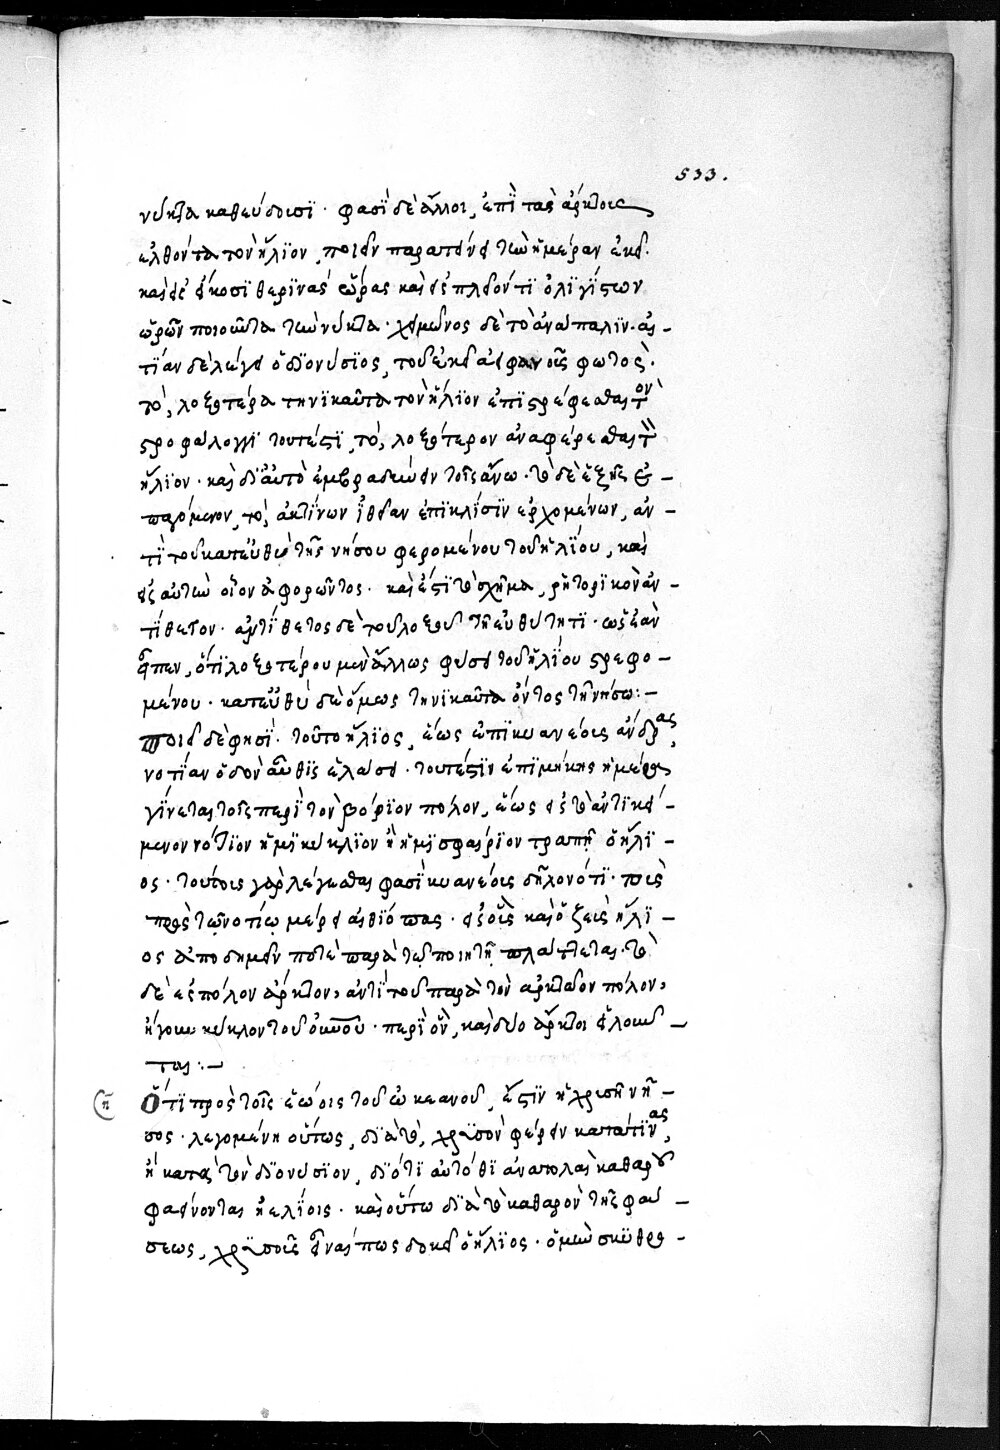 533.
νύκτα καθεύδουσι· φασὶ δὲ ἄλλοι, ἐπὶ τὰς ἄρκτους
ἐλθόντα τὸν ἥλιον, ποιεῖν παρατείνει τὴν ἡμέραν ἐκεῖ
καὶ εἰς εἴκοσι θερινὰς ὥρας καὶ εἰς πλείον τι ὀλιγίστων
ὡρῶν ποιοῦντα τὴν νύκτα· χειμῶνος δὲ τὸ ἀνάπαλιν· αἰ-
τίαν δὲ λέγει ὁ διονύσιος, τοῦ ἐκεῖ ἀειφανοῦς φωτὸς
τὸ, λοξοτέρα τηνικαῦτα τὸν ἥλιον ἐπιστρέφεσθαι τὸν
στροφάλιγγι τουτέστι, τὸ, λοξότερον ἀναφέρεσθαι τὸν
ἥλιον· καὶ δι' αὐτὸ ἐμβραδύνειν τοῖς ἄνω· τὸ δὲ ἑξῆς ἐ-
παγόμενον, τὸ, ἀκτίνων ἰθεῖαν ἐπὶ κλίσιν ἐρχομένων, ἀν-
τὶ τοῦ κατευθὺ τῆς νήσου φερομένου τοῦ ἡλίου, καὶ
εἰς αὐτὴν οἷον ἀφορῶντος· καὶ ἔστι τὸ σχῆμα, ῥητορικὸν ἀν-
τίθετον· ἀντίθετος δὲ τοῦ λοξοῦ ἡ εὐθύτητι· ὡς ἐὰν
εἶπεν, ὅτι λοξοτέρου μὲν ἄλλως φύσει τοῦ ἡλίου στρεφο-
μένου· κατευθὺ δὲ ὅμως τηνικαῦτα ὄντος τῇ νήσῳ:-
ποιεῖ δέ φησι τοῦτο ἥλιος, ἕως ἐπὶ κυανέους ἄνδρας,
νοτίαν ὁδὸν αὖθις ἐλάσει· τουτέστιν ἐπιμήκης ἡμέρα
γίνεται τοῖς περὶ τὸν βόρειον πόλον, ἕως εἰς τὸ ἀντικεί-
μενον νότιον ἡμικύκλιον ἢ ἡμισφαίριον τραπῇ ὁ ἥλι-
ος· τούτοις γὰρ λέγεσθαι φασὶ κυανέοις δηλονότι· τοῖς
πρὸς τῷ νοτίῳ μέρει αἰθίοπας· εἰς οὓς καὶ ὁ ζεὺς ἥλι-
ος ἀποδημεῖν ποτὲ παρὰ τῷ ποιητῇ πλάττεται· τὸ
δὲ ἐς πόλον ἄρκτον, ἀντὶ τοῦ παρὰ τὸν ἀρκτῷον πόλον,
ἤγουν κύκλον τοῦ οὐνοῦ· περὶ ὃν, καὶ δύο ἄρκτοι εἱλοῦν-
ται:-
(η) Ὅτι πρὸς τοῖς ἑῴοις τοῦ ὠκεανοῦ, ἔστιν ἡ χρυσῆ νῆ-
σος· λεγομένη οὕτως, διὰ τὸ, χρυσὸν φέρειν κατά τινας,
ἢ κατὰ τὸν διονύσιον, διότι αὐτόθι ἀνατολὰς καθαροῦ
φαείνονται ἠελίοις· καὶ οὕτω διὰ τὸ καθαρὸν τῆς φαύ-
σεως, χρυσοῦς εἶναί πως δοκεῖ ὁ ἥλιος· ὁ μὴν σκυθρω-